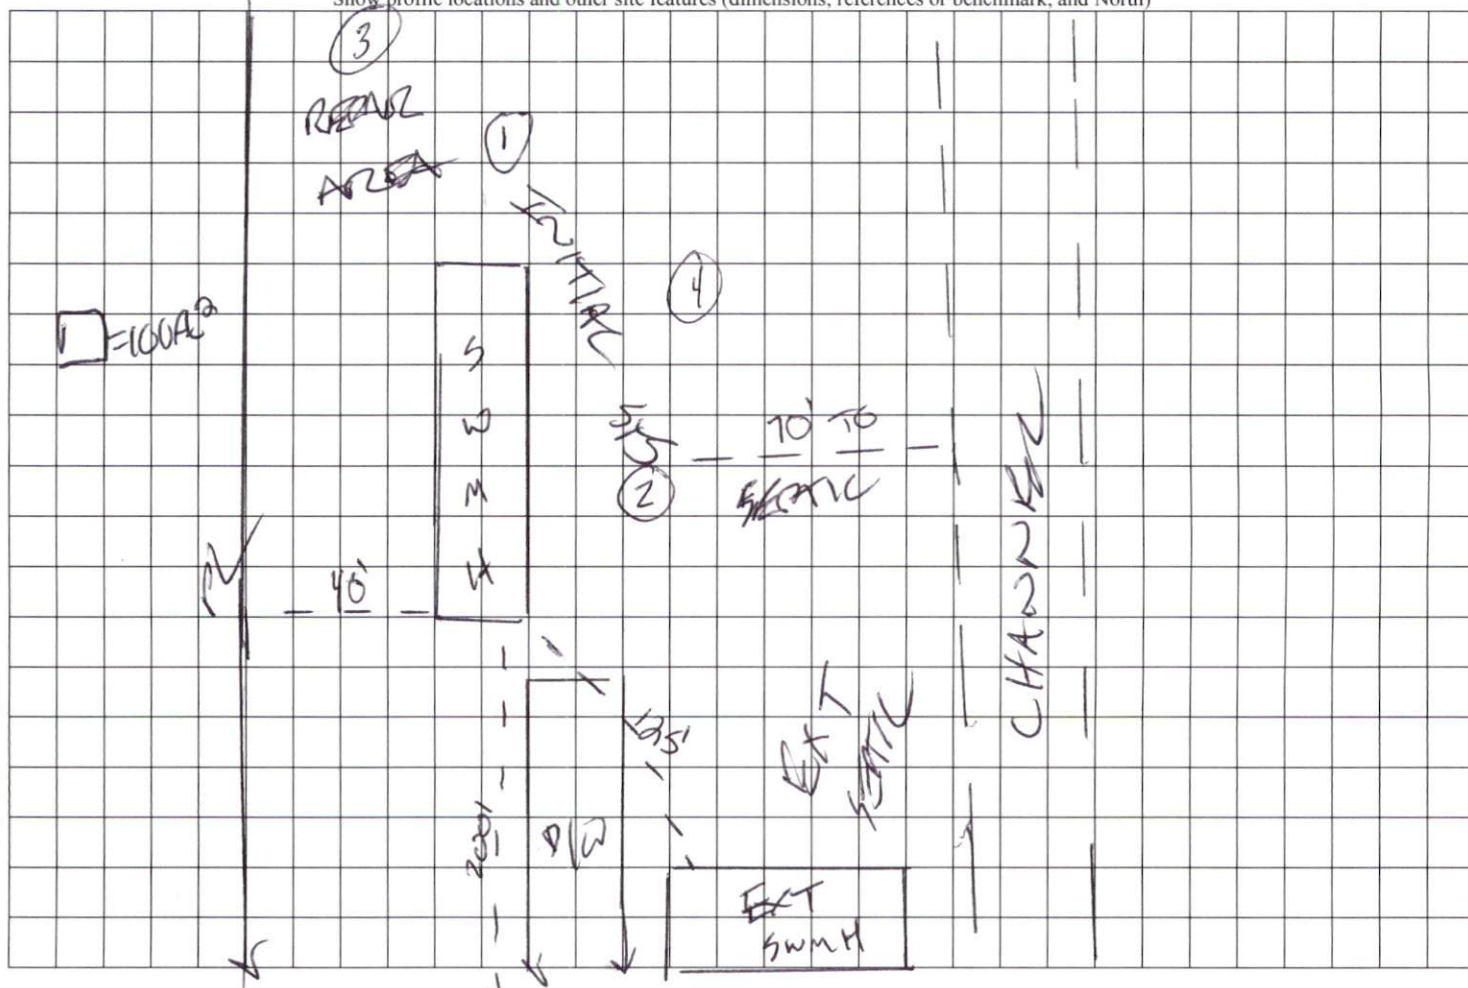 Show profile locations and other site features (dimensions, references or benchmark, and North)
3
REPAIR
AREA
1
INITIAL
SYS
4
=100ft²
S
W
M
H
70' TO
SEPTIC
2
CHANNEL
40'
125'
EXT
SEPTIC
200'
D/W
EXT
SWMH